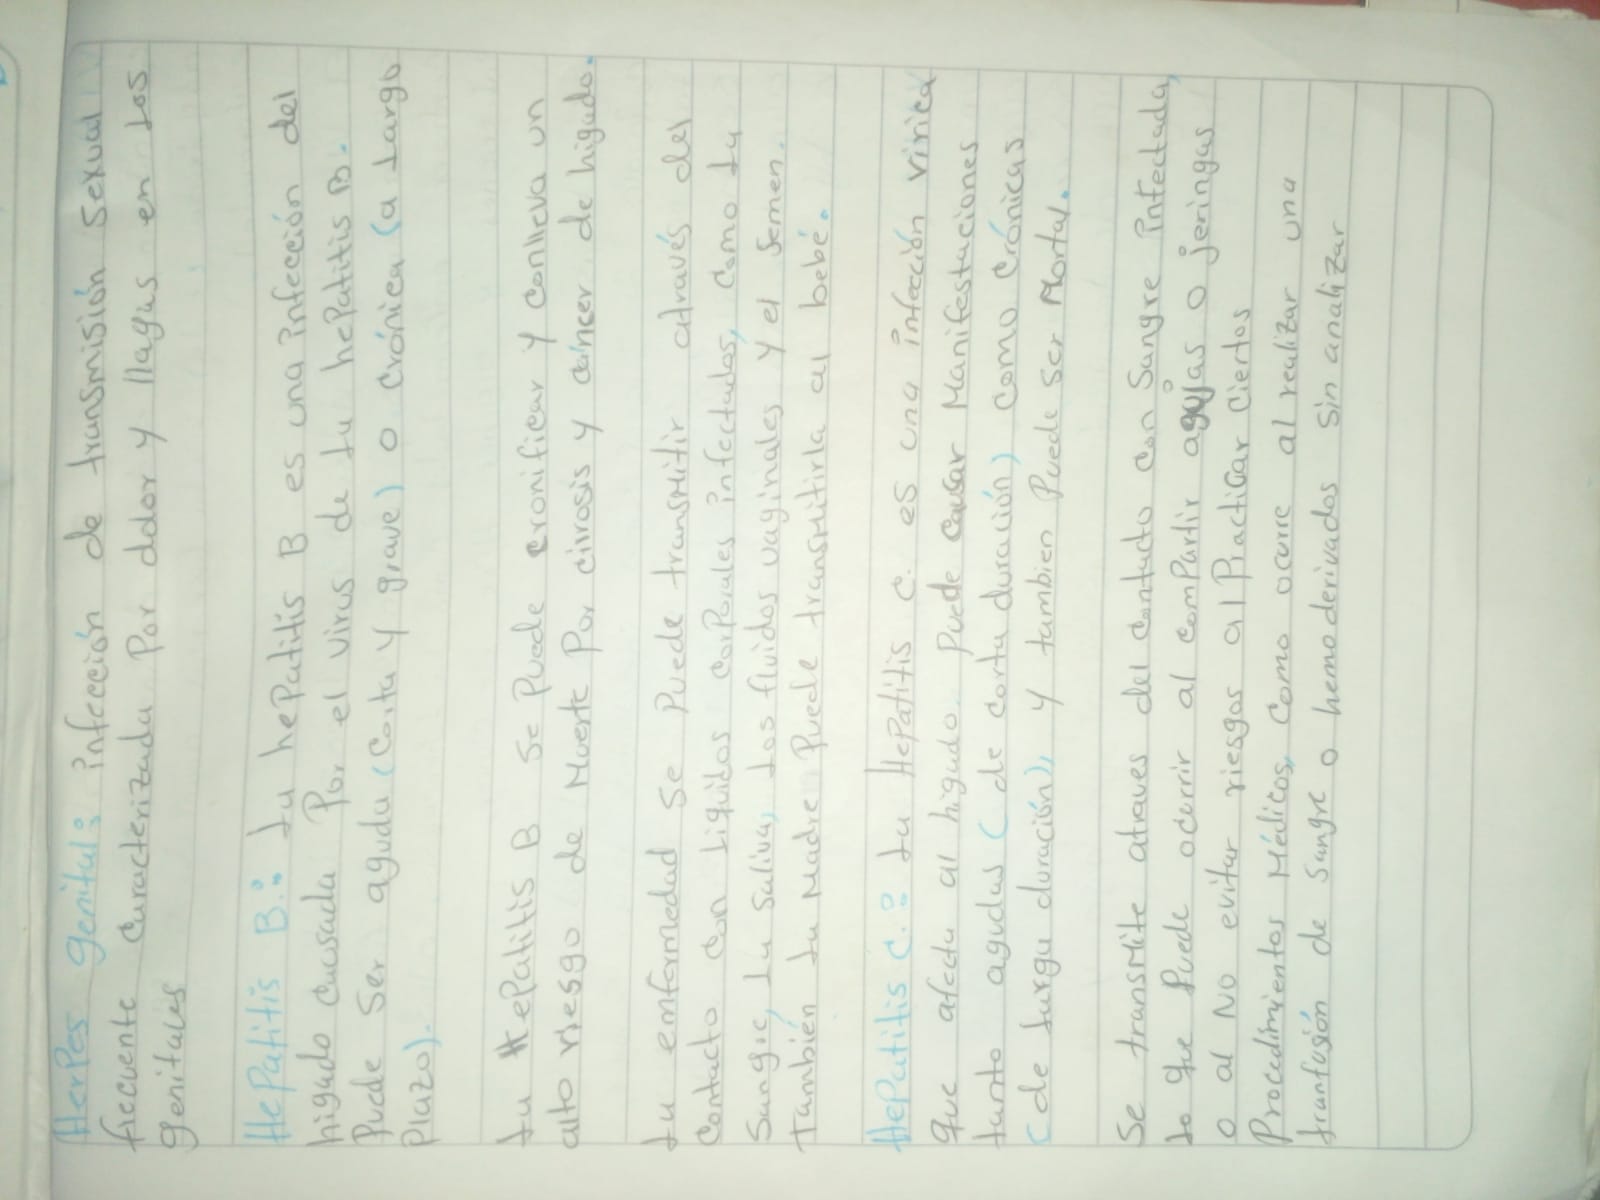 HerPes genital: infección de transmisión sexual
frecuente caracterizada Por dolor y llagas en los
genitales
HePatitis B.: La hePatitis B es una infección del
higado causada Por el virus de la hePatitis B.
Puede Ser aguda (Corta y grave) o crónica (a largo
Plazo).
La HePatitis B se Puede cronificar y conlleva un
alto riesgo de Muerte Por cirrosis y cáncer de higado.
La enfermedad se Puede transmitir através del
Contacto con liquidos corPorales infectados, como la
Sangre, la saliva, los fluidos vaginales y el semen.
También la Madre Puede transmitirla al bebé.
HePatitis C.: La HePatitis C. es una infección virica
que afecta al higado. Puede causar Manifestaciones
tanto agudas (de corta duración) como crónicas
(de larga duración), y tambien Puede ser Mortal.
Se transmite atraves del contacto con Sangre infectada,
lo que Puede ocurrir al comPartir agujas o jeringas
o al No evitar riesgos al Practicar ciertos
Procedimientos Médicos, como ocurre al realizar una
tranfusión de sangre o hemoderivados sin analizar